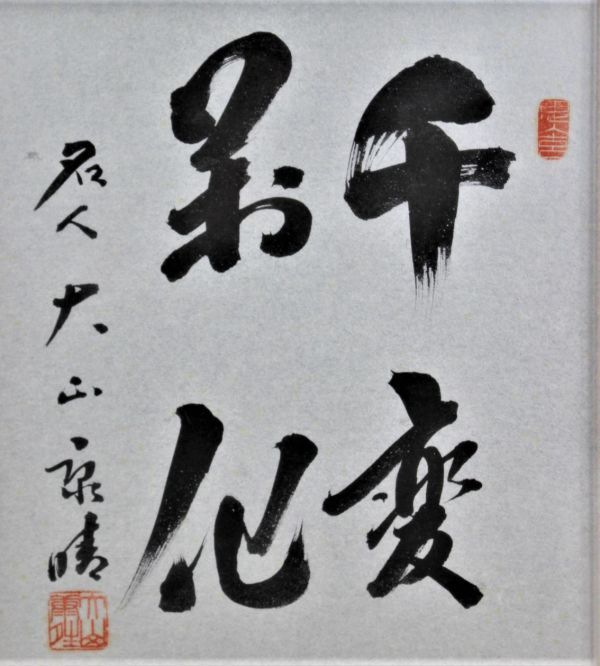 千変
萬化
名人 大山康晴